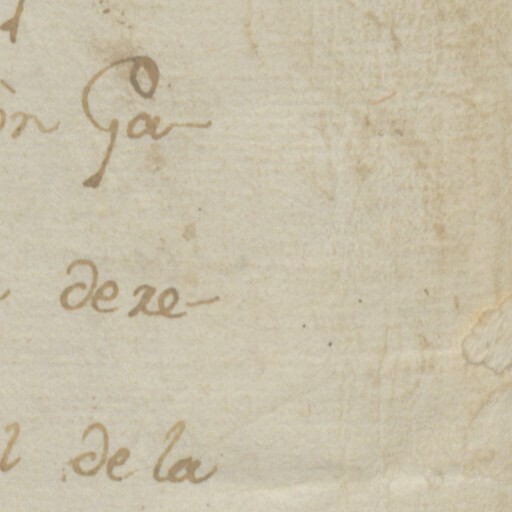 òn Ga-
dexe-
l de la